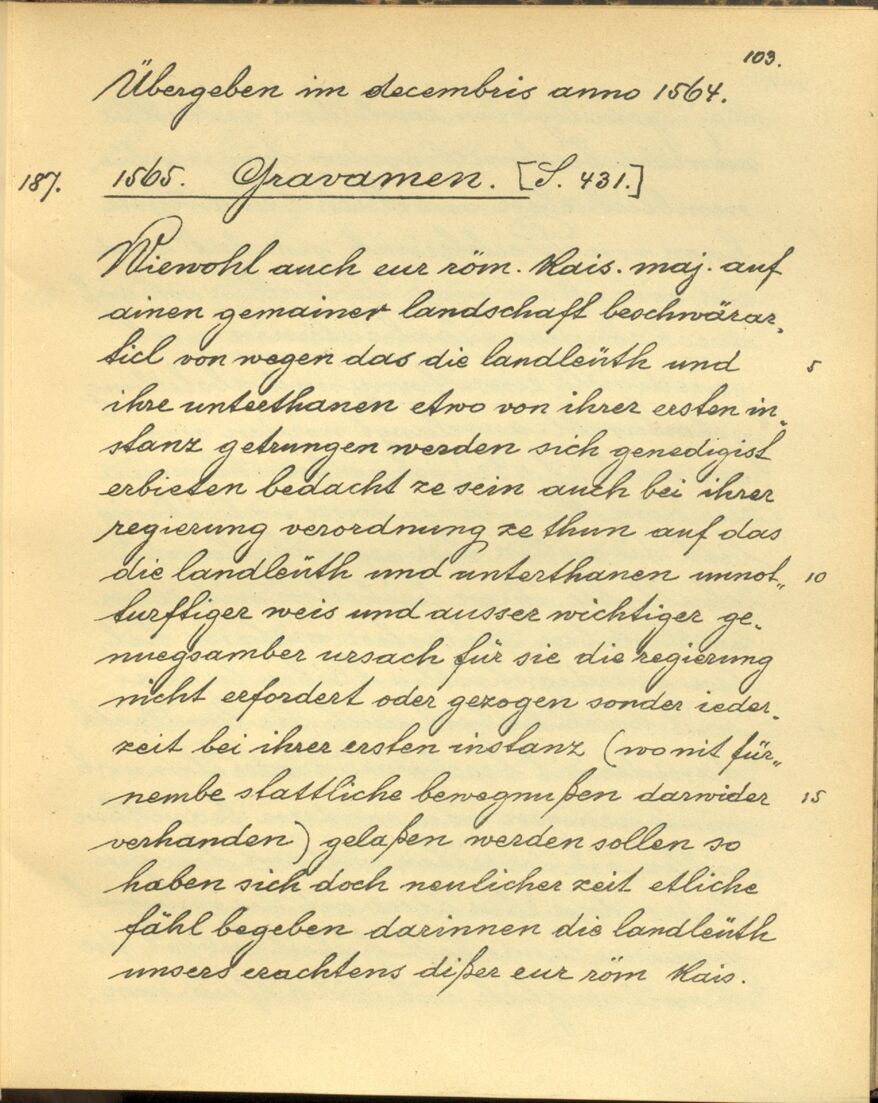 103.
Übergeben im decembris anno 1564.
187. 1565. Gravamen. [S. 431.]
Wiewohl auch eur röm. Kais. maj. auf
ainen gemainer landschaft beschwärar„
ticl von wegen das die landleüth und 5
ihre unterthanen etwo von ihrer ersten in„
stanz getrungen werden sich genedigist
erbieten bedacht ze sein auch bei ihrer
regierung verordnung ze thun auf das
die landleüth und unterthanen unnot„ 10
turftiger weis und ausser wichtiger ge„
nuegsamber ursach für sie die regierung
nicht erfordert oder gezogen sonder ieder„
zeit bei ihrer ersten instanz (wo nit für„
nembe stattliche bewegnußen darwider 15
verhanden) gelaßen werden sollen so
haben sich doch neulicher zeit etliche
fähl begeben darinnen die landleüth
unsers erachtens dißer eur röm Kais.